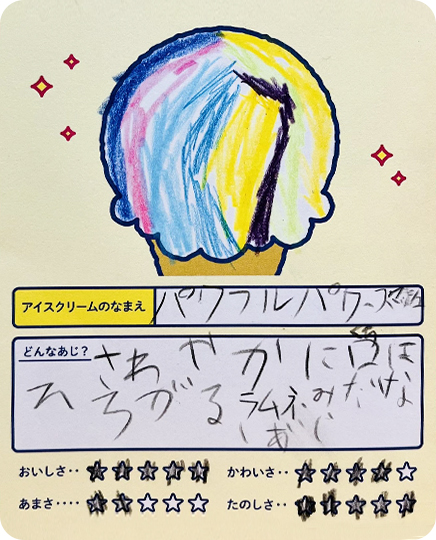 アイスクリームのなまえ パワフルパワーズ
どんなあじ? さわやかに口ほ
ろがる ラムネみだけな
い あじ
おいしさ‥ ★★★★★
かわいさ‥ ★★★★☆
あまさ‥‥ ★★☆☆☆
たのしさ‥ ★★★★★